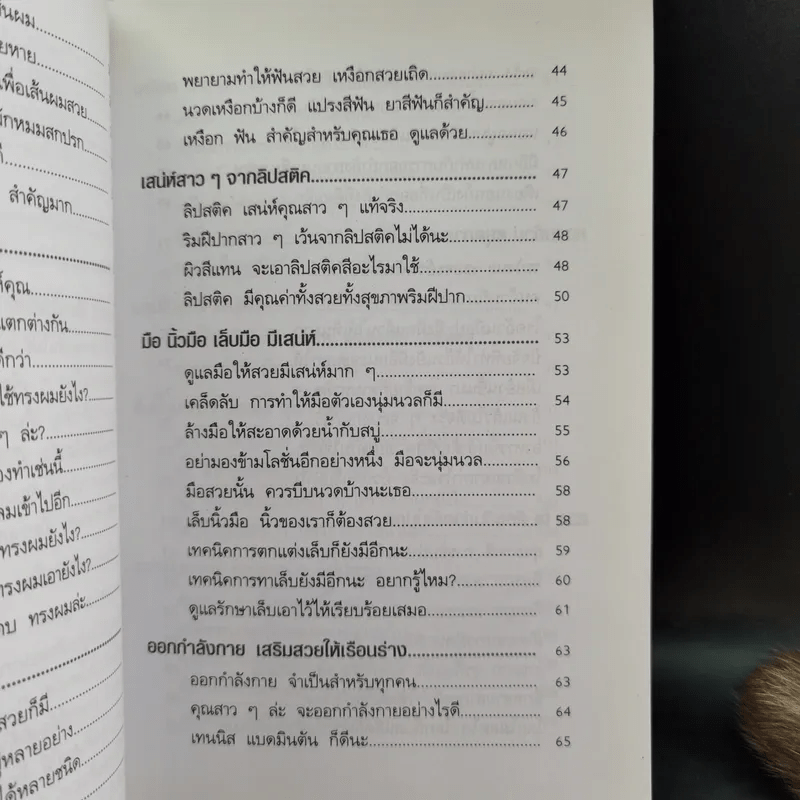 ส้นผม
ยหาย
เพื่อเส้นผมสวย
ักหมมสกปรก
ดี
สำคัญมาก
ห์คุณ
แตกต่างกัน
ดีกว่า
ใช้ทรงผมยังไง?
ๆ ล่ะ?
องทำเช่นนี้
ลมเข้าไปอีก
ทรงผมยังไง?
ทรงผมเอายังไง?
ทรงผมล่ะ
สวยก็มี
ู่หลายอย่าง
ได้หลายชนิด
พยายามทำให้ฟันสวย เหงือกสวยเถิด 44
นวดเหงือกบ้างก็ดี แปรงสีฟัน ยาสีฟันก็สำคัญ 45
เหงือก ฟัน สำคัญสำหรับคุณเธอ ดูแลด้วย 46
เสน่ห์สาว ๆ จากลิปสติค 47
ลิปสติค เสน่ห์คุณสาว ๆ แท้จริง 47
ริมฝีปากสาว ๆ เว้นจากลิปสติคไม่ได้นะ 48
ผิวสีแทน จะเอาลิปสติคสีอะไรมาใช้ 48
ลิปสติค มีคุณค่าทั้งสวยทั้งสุขภาพริมฝีปาก 50
มือ นิ้วมือ เล็บมือ มีเสน่ห์ 53
ดูแลมือให้สวยมีเสน่ห์มาก ๆ 53
เคล็ดลับ การทำให้มือตัวเองนุ่มนวลก็มี 54
ล้างมือให้สะอาดด้วยน้ำกับสบู่ 55
อย่ามองข้ามโลชั่นอีกอย่างหนึ่ง มือจะนุ่มนวล 56
มือสวยนั้น ควรบีบนวดบ้างนะเธอ 58
เล็บนิ้วมือ นิ้วของเราก็ต้องสวย 58
เทคนิคการตกแต่งเล็บก็ยังมีอีกนะ 59
เทคนิคการทาเล็บยังมีอีกนะ อยากรู้ไหม? 60
ดูแลรักษาเล็บเอาไว้ให้เรียบร้อยเสมอ 61
ออกกำลังกาย เสริมสวยให้เรือนร่าง 63
ออกกำลังกาย จำเป็นสำหรับทุกคน 63
คุณสาว ๆ ล่ะ จะออกกำลังกายอย่างไรดี 64
เทนนิส แบดมินตัน ก็ดีนะ 65